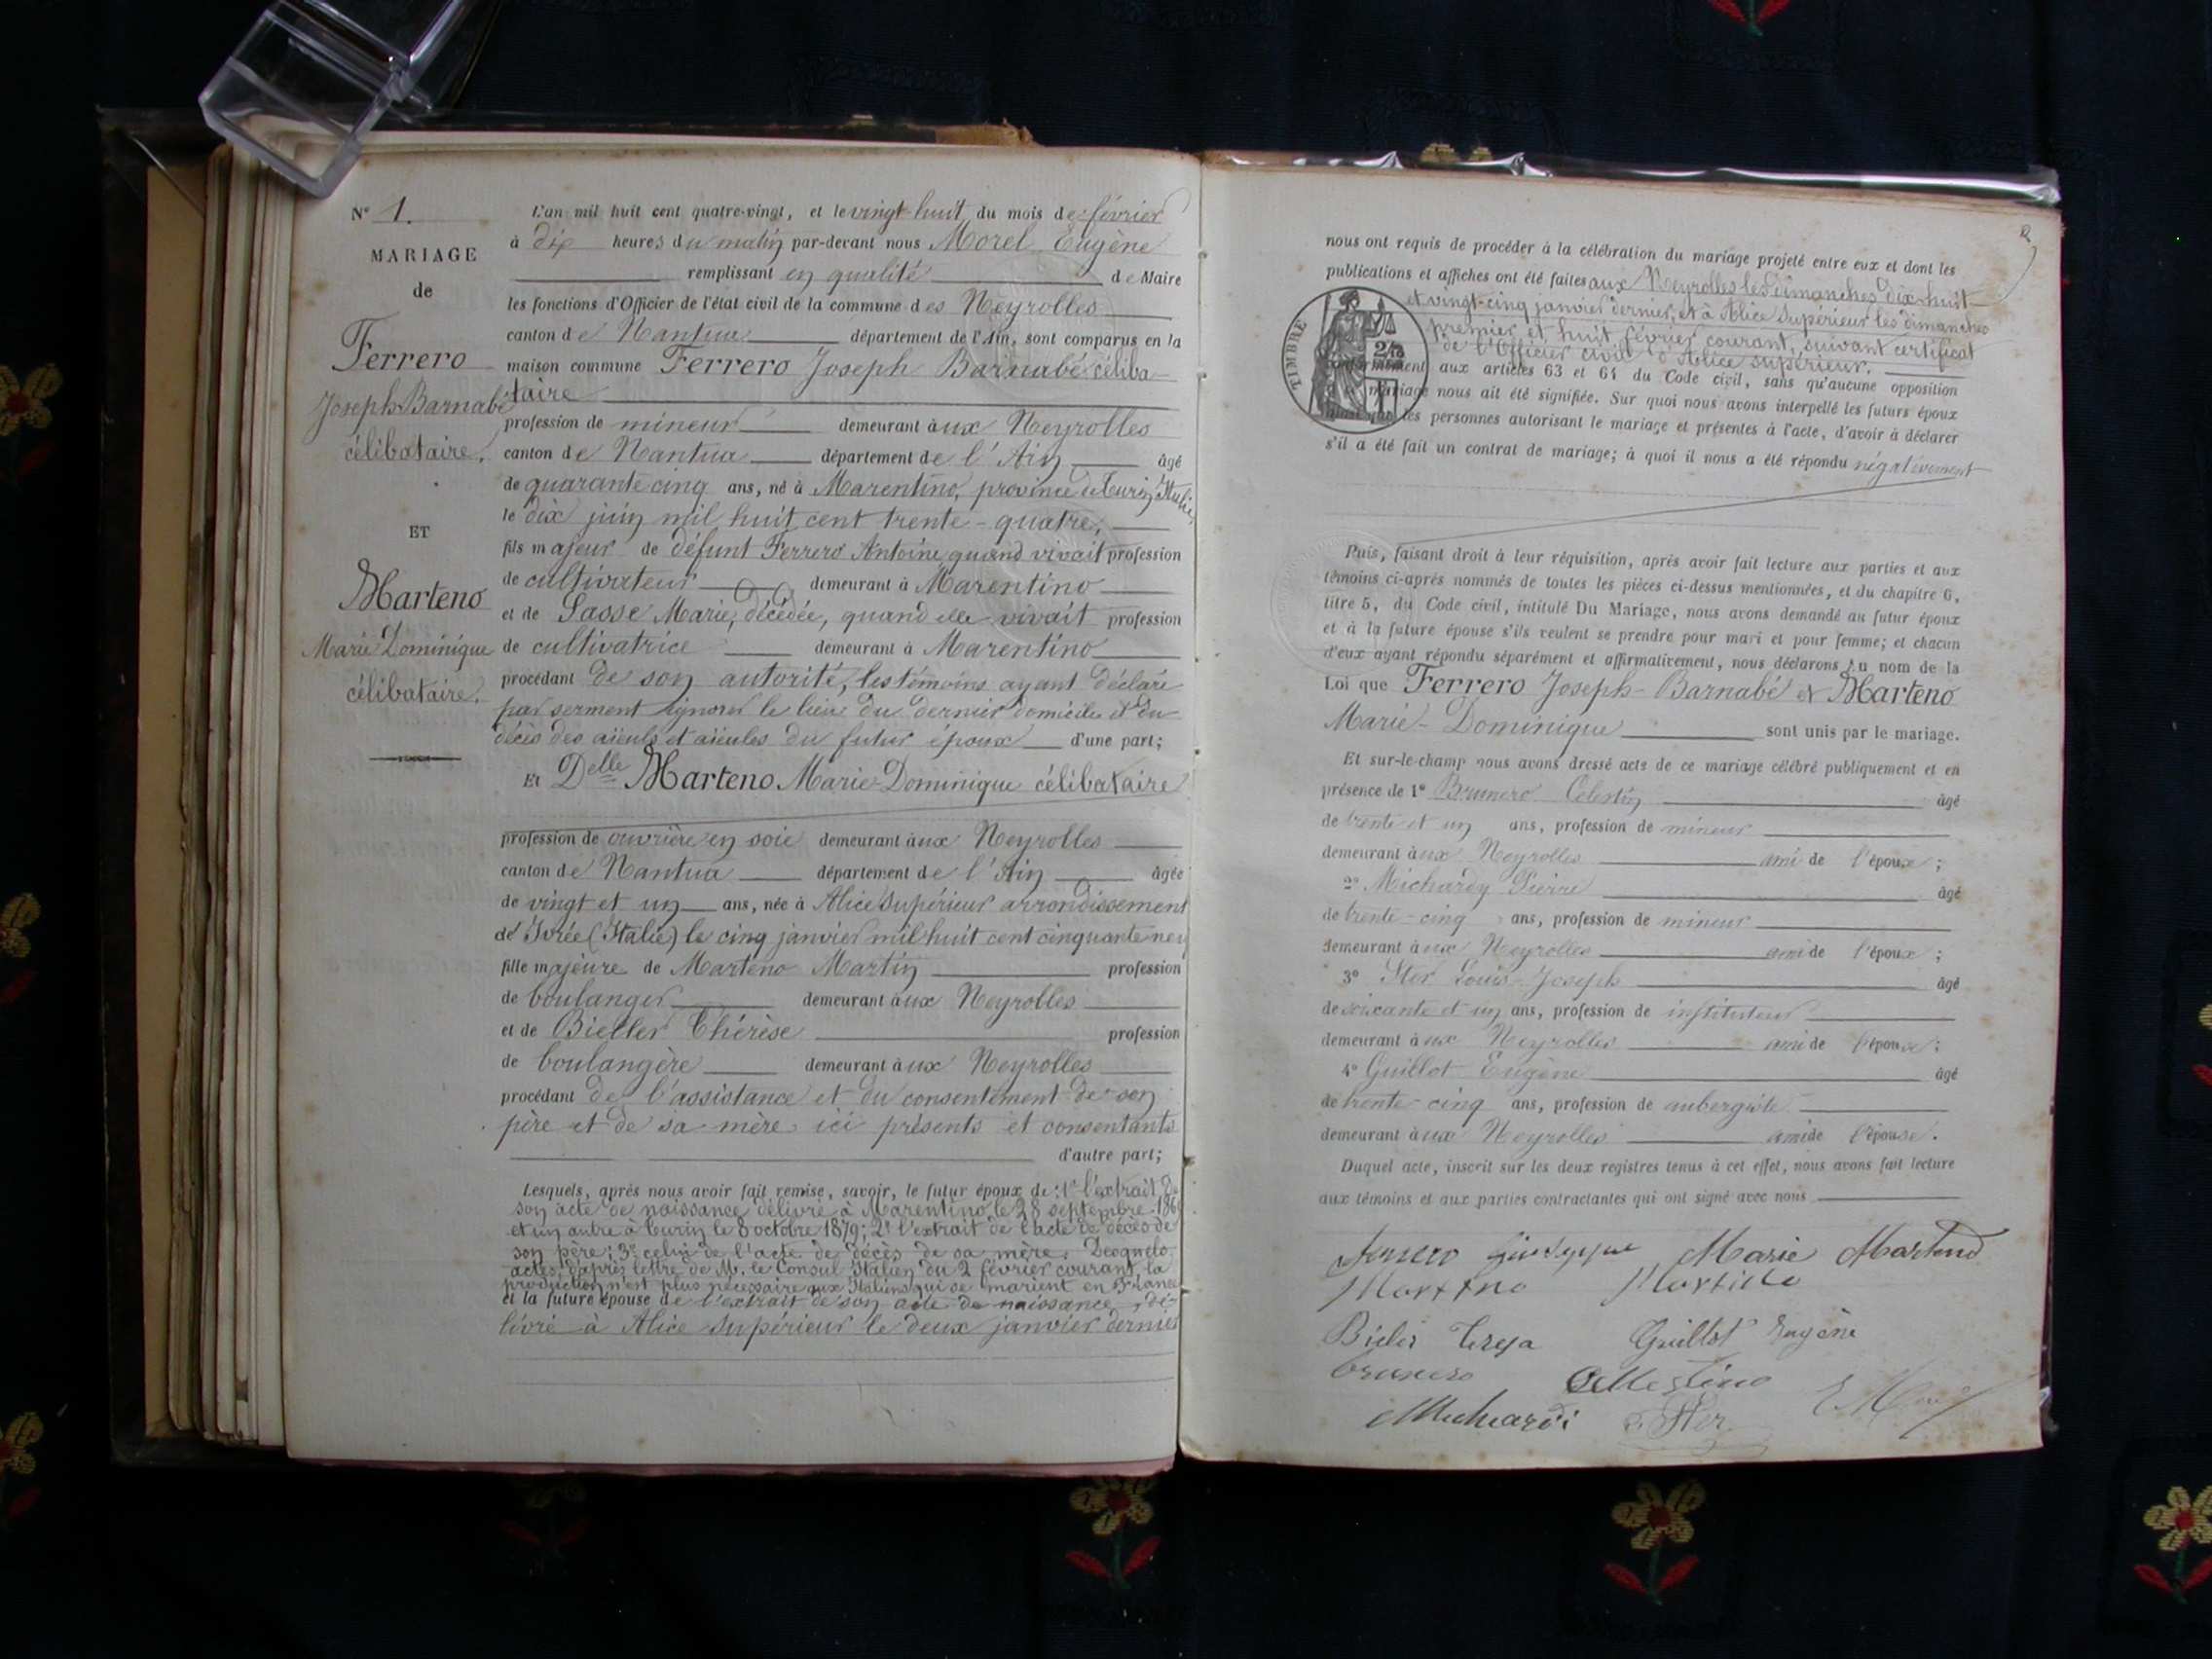 N° 1.
MARIAGE
de
Ferrero
Joseph Barnabé
célibataire.
ET
Marteno
Marie Dominique
célibataire.
L'an mil huit cent quatre-vingt, et le vingt-huit du mois de février
à dix heures du matin par-devant nous Morel Eugène
remplissant en qualité de Maire
les fonctions d'Officier de l'état civil de la commune des Neyrolles
canton de Nantua département de l'Ain, sont comparus en la
maison commune Ferrero Joseph Barnabé céliba-
taire
profession de mineur demeurant aux Neyrolles
canton de Nantua département de l'Ain âgé
de quarante cinq ans, né à Marentino, province de Turin, Italie,
le dix juin mil huit cent trente-quatre,
fils majeur de défunt Ferrero Antoine quand vivait profession
de cultivateur demeurant à Marentino
et de Sasse Marie, décédée, quand elle vivait profession
de cultivatrice demeurant à Marentino
procédant de son autorité, les témoins ayant déclaré
par serment ignorer le lieu du dernier domicile et du
décès des aïeuls et aïeules du futur époux d'une part;
Et Delle Marteno Marie-Dominique célibataire
profession de ouvrière en soie demeurant aux Neyrolles
canton de Nantua département de l'Ain âgée
de vingt et un ans, née à Alice Supérieur arrondissement
de Ivrée (Italie) le cinq janvier mil huit cent cinquante neuf
fille majeure de Marteno Martin profession
de boulanger demeurant aux Neyrolles
et de Bieller Thérèse profession
de boulangère demeurant aux Neyrolles
procédant de l'assistance et du consentement de son
père et de sa mère ici présents et consentants
d'autre part;
Lesquels, après nous avoir fait remise, savoir, le futur époux de: 1° l'extrait de
son acte de naissance délivré à Marentino, le 28 septembre
et un autre à Turin le 8 octobre 1879; 2° l'extrait de l'acte de décès de
son père; 3° celui de l'acte de décès de sa mère. Desquels
actes, d'après lettre de M. le Consul Italien du 2 février courant, la
production n'est plus nécessaire aux Italiens qui se marient en France
et la future épouse de l'extrait de son acte de naissance, dé-
livré à Alice Supérieur le deux janvier dernier
2
nous ont requis de procéder à la célébration du mariage projeté entre eux et dont les
publications et affiches ont été faites aux Neyrolles les dimanches dix-huit
et vingt-cinq janvier dernier, et à Alice Supérieur les dimanches
premier et huit février courant, suivant certificat
de l'Officier civil d'Alice Supérieur.
TIMBRE
conformément aux articles 63 et 64 du Code civil, sans qu'aucune opposition
mariage nous ait été signifiée. Sur quoi nous avons interpellé les futurs époux
les personnes autorisant le mariage et présentes à l'acte, d'avoir à déclarer
s'il a été fait un contrat de mariage; à quoi il nous a été répondu négativement
Puis, faisant droit à leur réquisition, après avoir fait lecture aux parties et aux
témoins ci-après nommés de toutes les pièces ci-dessus mentionnées, et du chapitre 6,
titre 5, du Code civil, intitulé Du Mariage, nous avons demandé au futur époux
et à la future épouse s'ils veulent se prendre pour mari et pour femme; et chacun
d'eux ayant répondu séparément et affirmativement, nous déclarons au nom de la
Loi que Ferrero Joseph-Barnabé et Marteno
Marie-Dominique sont unis par le mariage.
Et sur-le-champ nous avons dressé acte de ce mariage célébré publiquement et en
présence de 1° Brunero Celestin âgé
de trente et un ans, profession de mineur
demeurant aux Neyrolles ami de l'époux;
2° Michardy Pierre âgé
de trente-cinq ans, profession de mineur
demeurant aux Neyrolles ami de l'époux;
3° Louis-Joseph âgé
de soixante et un ans, profession de instituteur
demeurant aux Neyrolles ami de
4° Guillot Eugène âgé
de trente-cinq ans, profession de aubergiste
demeurant aux Neyrolles ami de l'épouse.
Duquel acte, inscrit sur les deux registres tenus à cet effet, nous avons fait lecture
aux témoins et aux parties contractantes qui ont signé avec nous
Ferrero Giuseppe Marie Marteno
Marteno
Guillot Eugène
Brunero Cellestino
Michardi